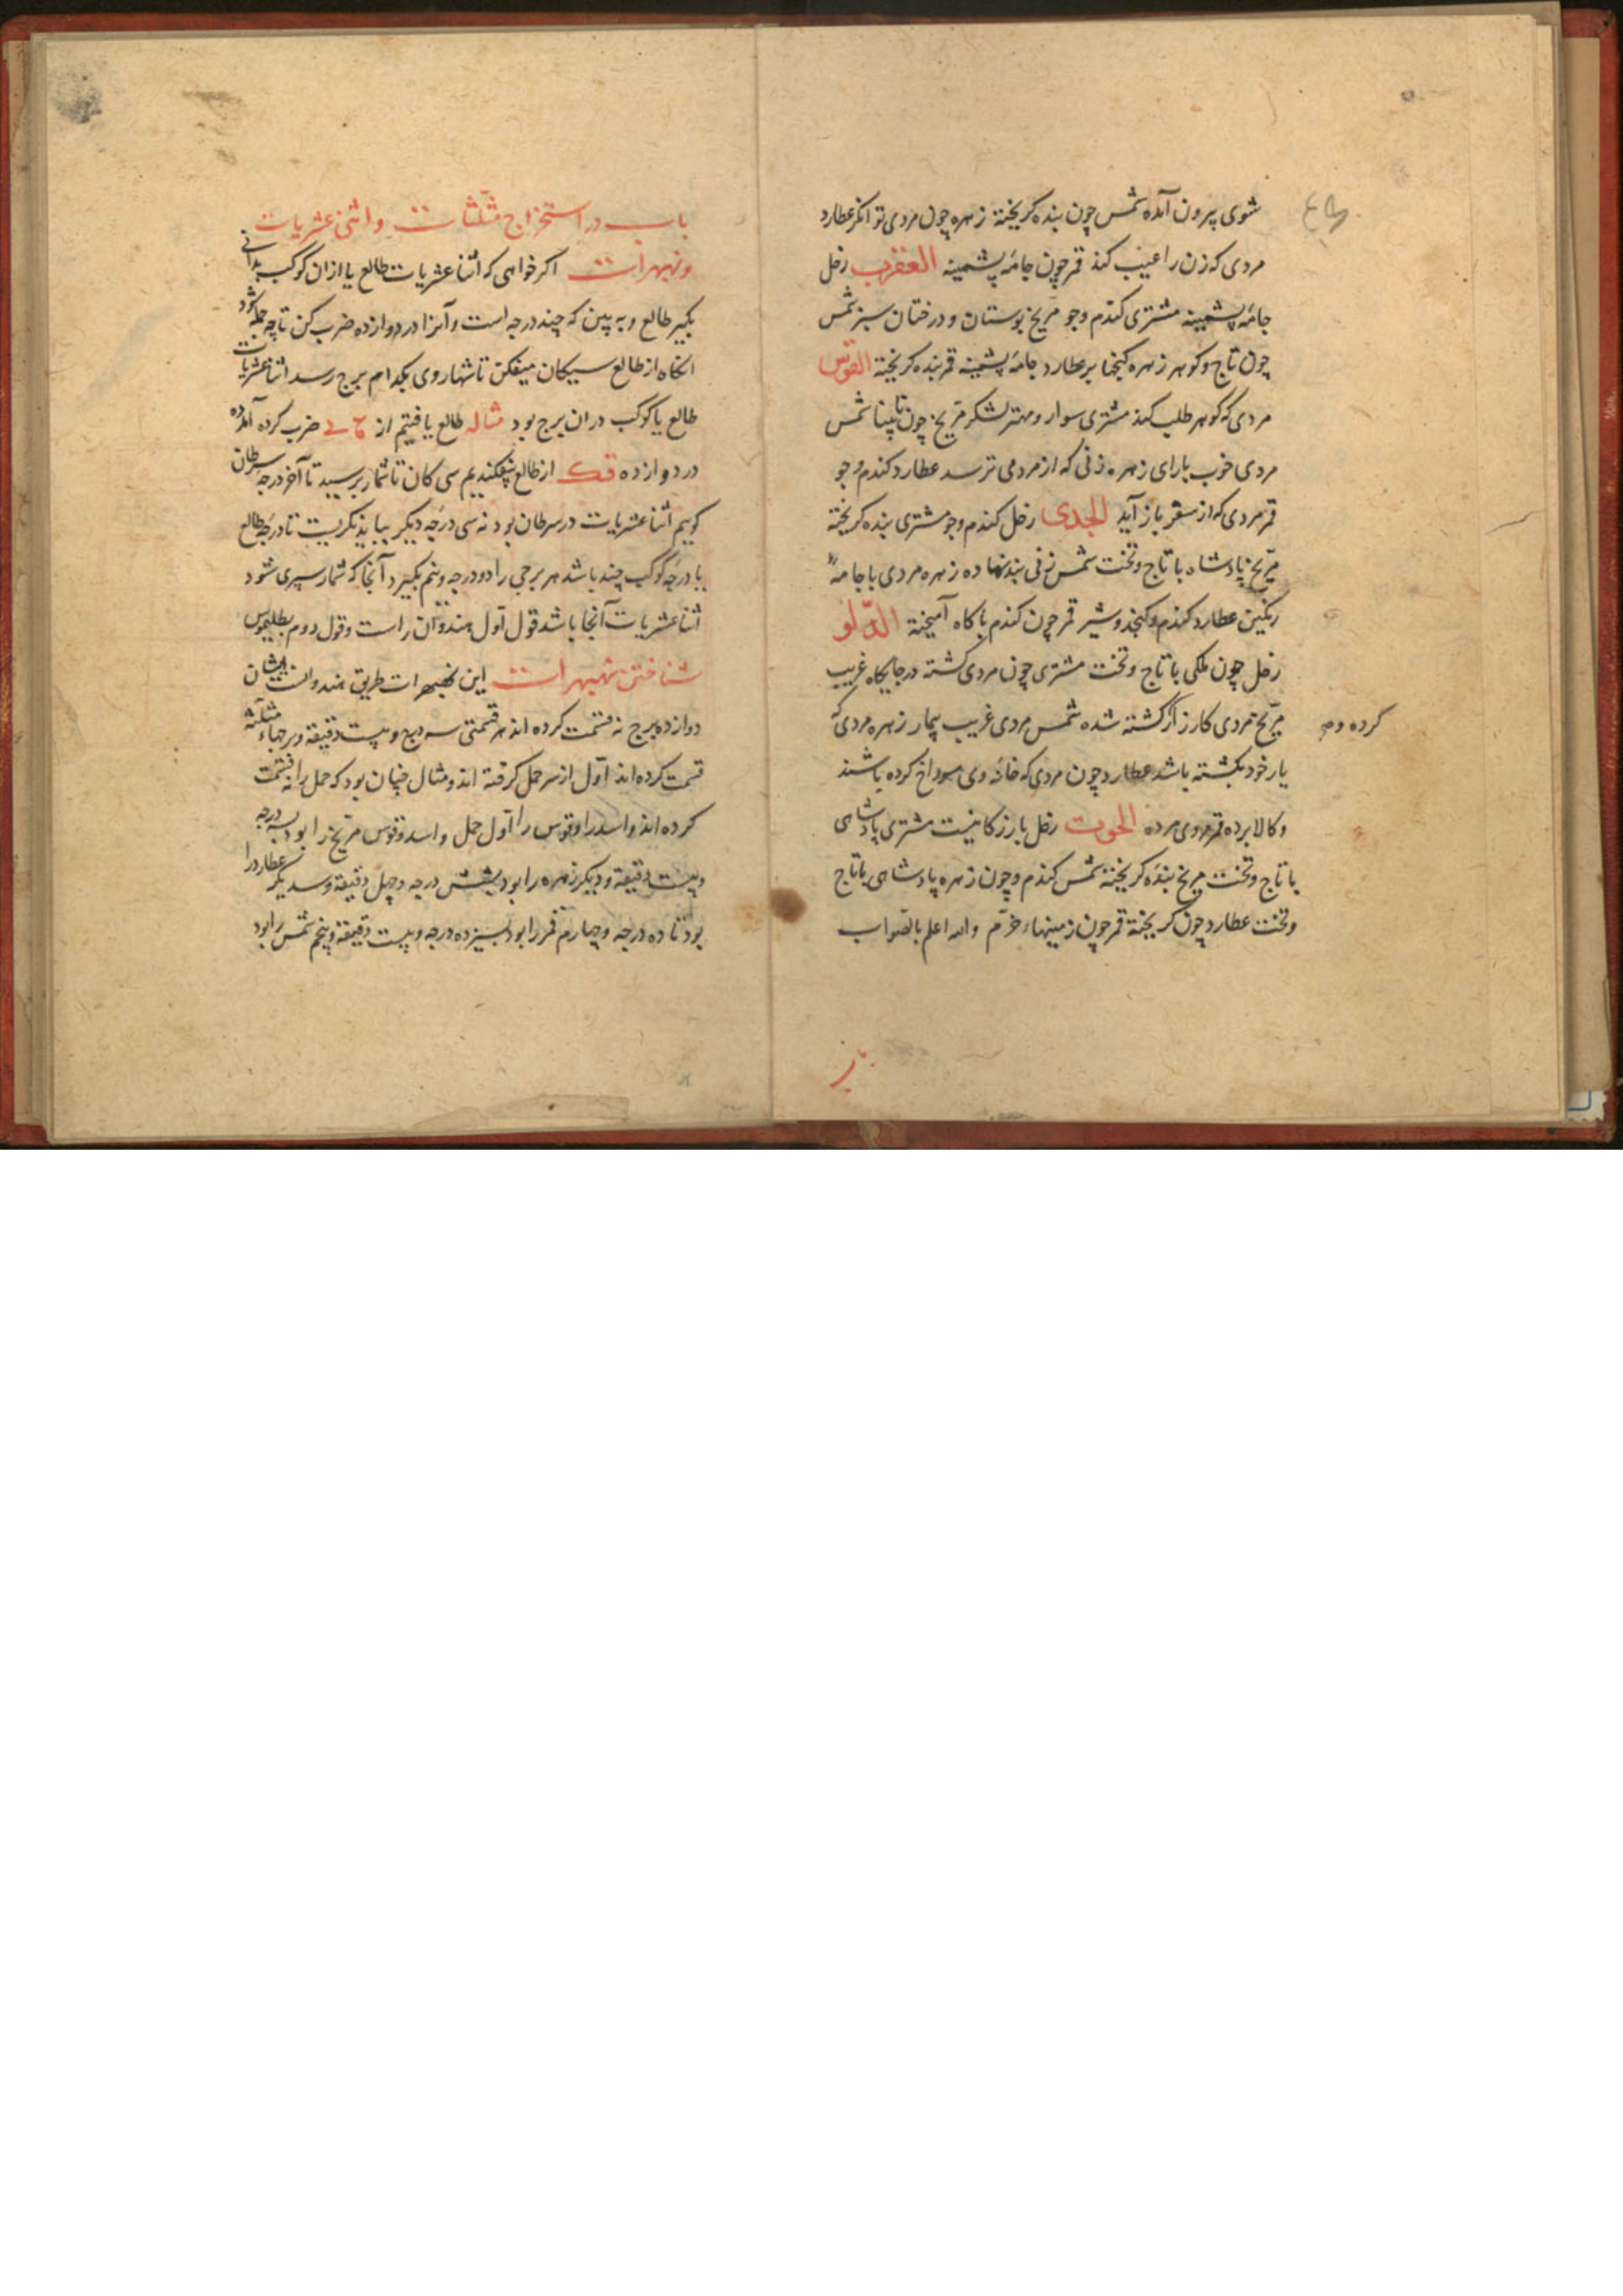 شوی پیرون آمده شمس چون بنده کریخته زهره چون مردی توانکر عطارد
مردی که زن را عیب کند قمر چون جامه پشمینه العقرب زحل
جامه پشمینه مشتری کندم وجو مریخ بوستان و درختان سبز شمس
چون تاج وکوهر زهره عطارد جامه پشمینه قمر بنده کریخته القوس
مردی که کوهر طلب کند مشتری سوار ومهتر لشکر مریخ چون شمس
مردی خوب بارای زهره زنی که از مردمی ترسد عطارد کندم وجو
قمر مردی که از سفر باز آید الجدی زحل کندم وجو مشتری بنده کریخته
مریخ پادشاه با تاج وتخت شمس زنی زهره مردی با جامه
رنکین عطارد کندم وکنجد وشیر قمر چون کندم با کاه آمیخته الدلو
زحل چون ملکی با تاج وتخت مشتری چون مردی کشته در جایکاه غریب
مریخ مردی کارزار کشته شده شمس مردی غریب بیمار زهره مردی که
کرده و
یار خود بکشته باشد عطارد چون مردی که خانه وی سوراخ کرده باشند
وکالا برده قمر مردی مرده الحوت زحل بازرکانیست مشتری پادشاهی
با تاج وتخت مریخ بنده کریخته شمس کندم وچون زهره پادشاهی با تاج
وتخت عطارد چون کریخته قمر چون زمینهاء خرم والله اعلم بالصواب
باب در استخراج مثلثات واثنی عشریات
ونهبهرات اکر خواهی که اثنا عشریات طالع یا ازان کوکب بدانی
بکیر طالع وبه بین که چند درجه است وآنرا در دوازده ضرب کن تا چه جمله شود
انکاه از طالع سیکان میفکن تا شمار وی بکدام برج رسد اثنا عشریات
طالع یا کوکب دران برج بود مثاله طالع یافتیم از ضرب کرده آمد
در دوازده قک از طالع بیفکندیم سی کان تا شمار برسید تا آخر درجه سرطان
کوییم اثنا عشریات در سرطان بود نه سی درجه دیکر بباید نکریست تا درجه طالع
یا درجه کوکب چند باشد هر برجی را دو درجه ونیم بکیرد آنجا که شمار سپری شود
اثنا عشریات آنجا باشد قول اول هندوان راست وقول دوم بطلیموس
شناختن نهبهرات این نهبهرات طریق هندوانست ایشان
دوازده برج نه قسمت کرده اند هر قسمتی سه درج وبیست دقیقه وبرجهاء مثلثه
قسمت کرده اند اول از سر حمل کرفته اند ومثال چنان بود که حمل را نه قسمت
کرده اند واسد را وقوس را اول حمل واسد وقوس مریخ را بود سه درجه
وبیست دقیقه ودیکر زهره را بود بشش درجه وچهل دقیقه وسدیکر عطارد را
بود تا ده درجه وچهارم قمر را بود بسیزده درجه وبیست دقیقه وپنجم شمس را بود